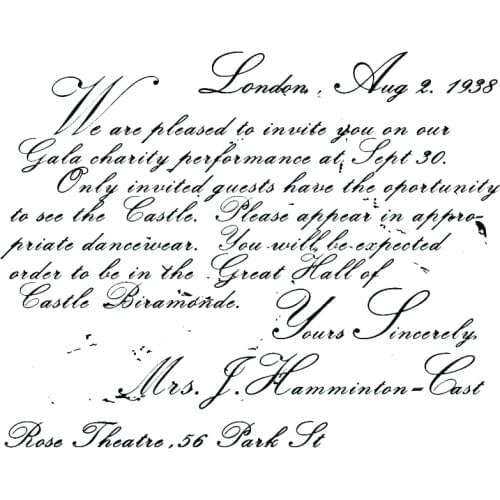 London, Aug 2. 1938
We are pleased to invite you on our
Gala charity performance at, Sept 30.
Only invited guests have the oportunity
to see the Castle. Please appear in appro-
priate dancewear. You will be expected
order to be in the Great Hall of
Castle Biramonde.
Yours Sincerely,
Mrs. J. Hamminton-Cast
Rose Theatre, 56 Park St